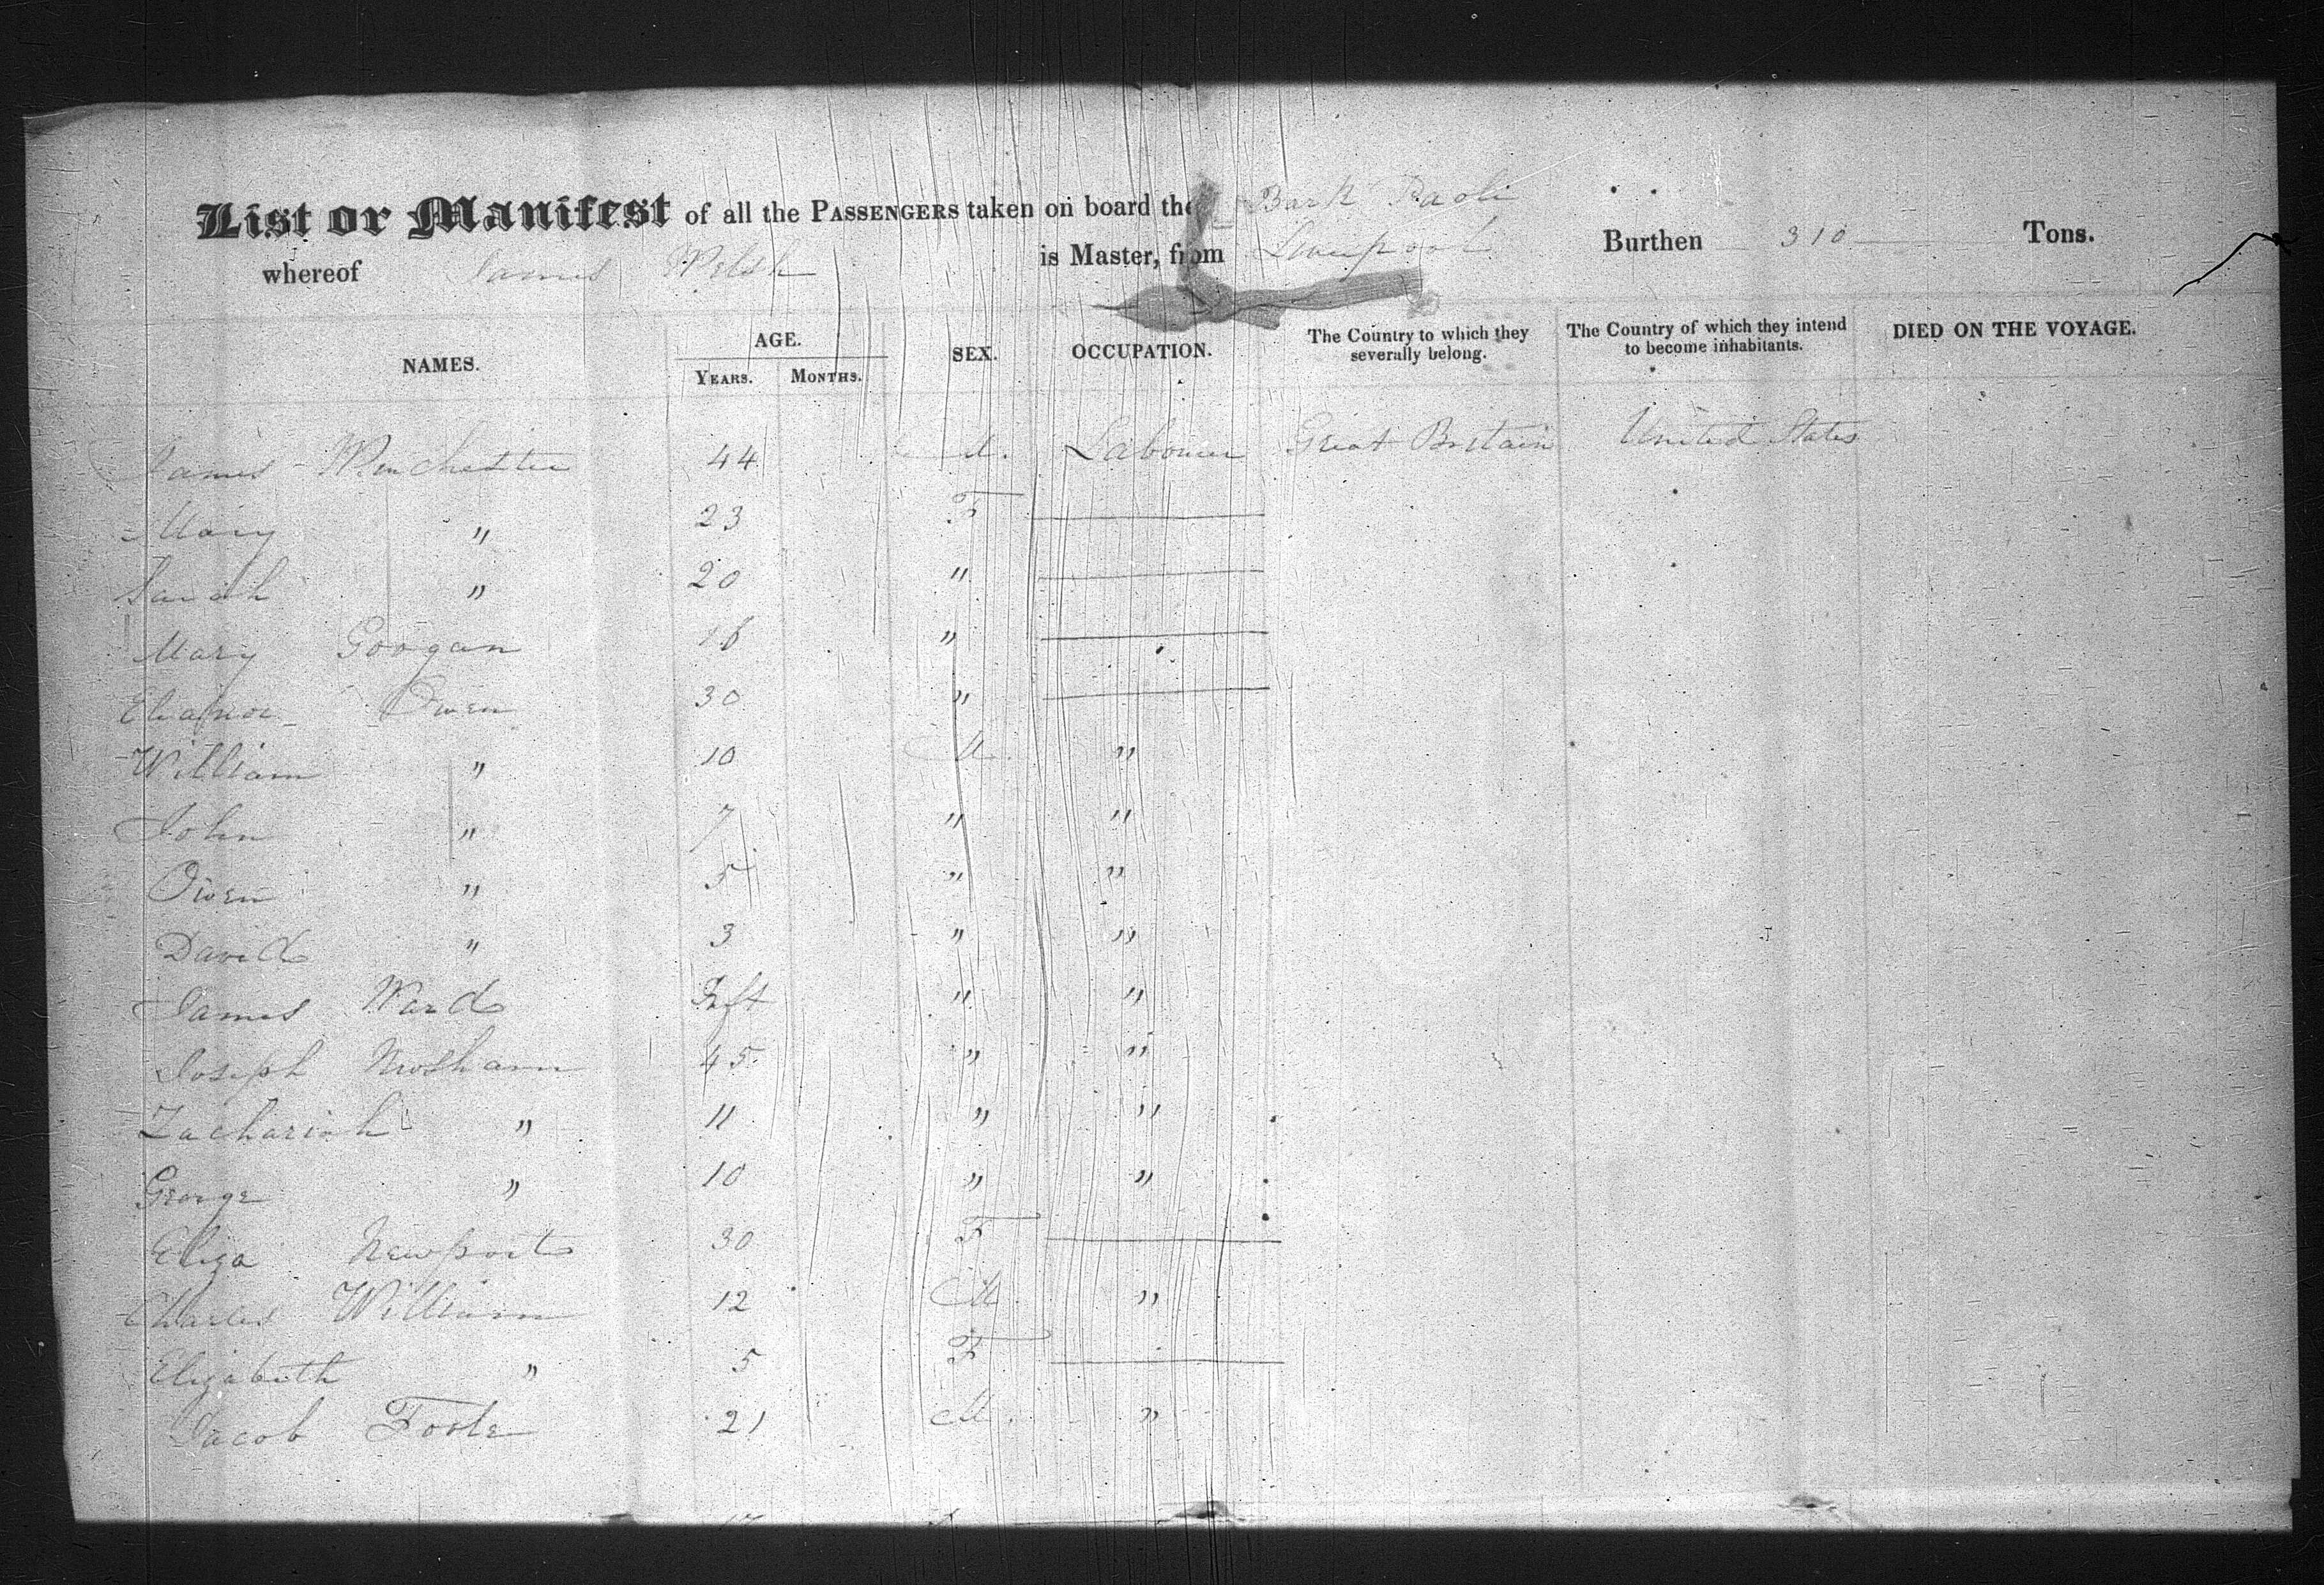 List or Manifest of all the PASSENGERS taken on board the Bark Paoli
whereof James Welsh is Master, from Liverpool Burthen 310 Tons.
NAMES. AGE. YEARS. MONTHS. SEX. OCCUPATION. The Country to which they severally belong. The Country of which they intend to become inhabitants. DIED ON THE VOYAGE.
James Winchester 44 M. Labourer Great Britain United States
Mary " 23 F
Sarah " 20 "
Mary Googan "
Eleanor Owen 30 "
William " 10 M. "
John " 7 " "
Owen " 5 " "
David " 3 " "
James Ward Inft " "
Joseph Newsham 45 " "
Zachariah " 11 " "
George " 10 " "
Eliza Newport 30 F
Charles William 12 M. "
Elizabeth " 5 F
Jacob Foole 21 M. "